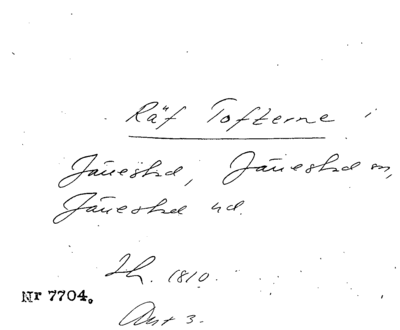 Räf Tofterne i
Jänestad, Jänestad sn,
Jänestad hd.
Ih. 1810.
Nr 7704.
Ant 3.